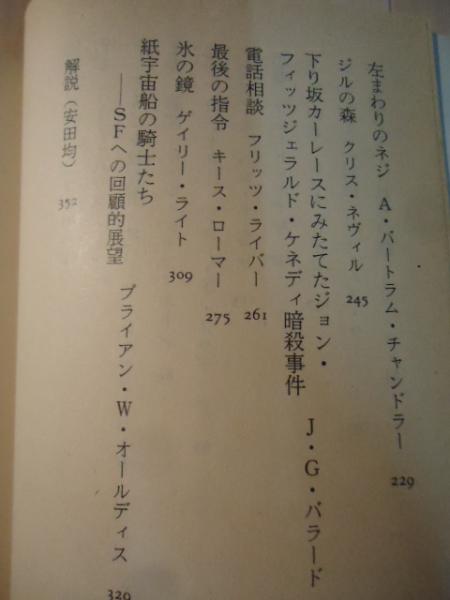 左まわりのネジ A・バートラム・チャンドラー 229
ジルの森 クリス・ネヴィル 245
下り坂カーレースにみたてたジョン・
フィッツジェラルド・ケネディ暗殺事件 J・G・バラード
電話相談 フリッツ・ライバー 261
最後の指令 キース・ローマー 275
氷の鏡 ゲイリー・ライト 309
紙宇宙船の騎士たち
――SFへの回顧的展望 ブライアン・W・オールディス 329
解説（安田均） 352